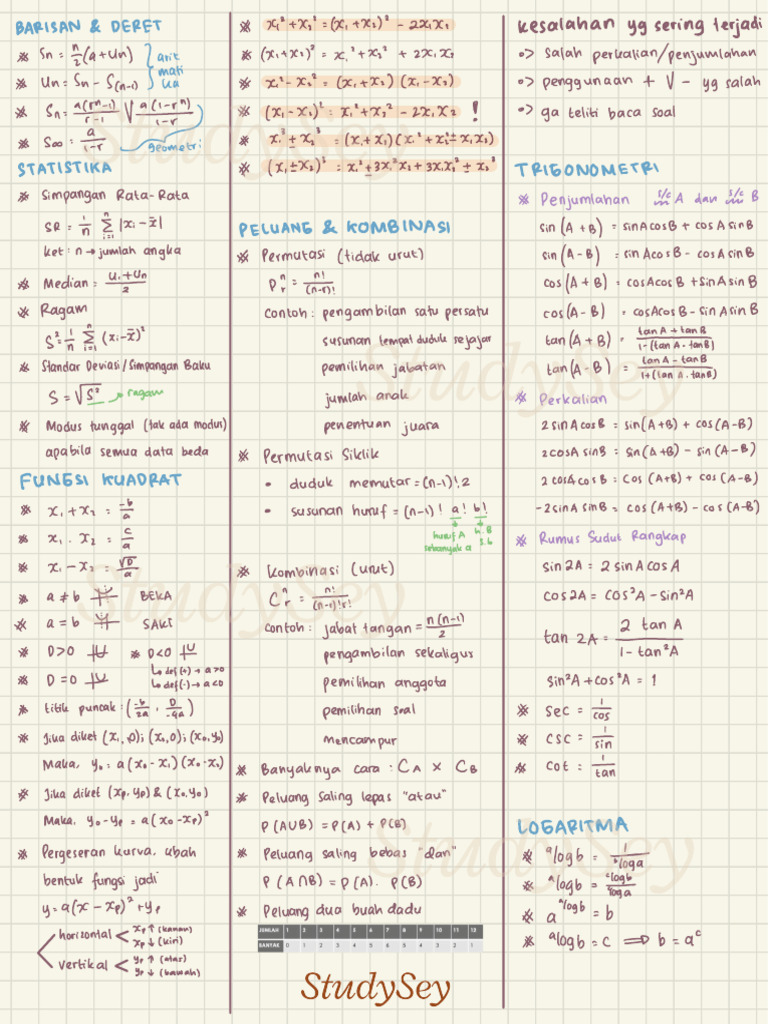 BARISAN & DERET
※ Sn = n/2 (a + Un)
※ Un = Sn - S(n-1)
arit
mati
ka
※ Sn = a(rⁿ-1)/r-1 V a(1-rⁿ)/1-r
※ S∞ = a/1-r
geometri
STATISTIKA
※ Simpangan Rata-Rata
SR = 1/n Σ |xi - x̄|
n
i=1
ket: n → jumlah angka
※ Median = U1+Un/2
※ Ragam
S² = 1/n Σ (xi - x̄)²
n
i=1
※ Standar Deviasi/Simpangan Baku
S = √S² → ragam
※ Modus tunggal (tak ada modus)
apabila semua data beda
FUNGSI KUADRAT
※ x₁ + x₂ = -b/a
※ x₁ . x₂ = c/a
※ x₁ - x₂ = √D/a
※ a ≠ b BEKA
※ a = b SAKI
※ D>0 ※ D<0
↳ def(+) → a>0
※ D=0 ↳ def(-) → a<0
※ titik puncak: (-b/2a , D/-4a)
※ Jika diket (x₁,0); (x₂,0); (x₀,y₀)
Maka, y₀ = a(x₀-x₁)(x₀-x₂)
※ Jika diket (xp, yp) & (x₀,y₀)
Maka, y₀-yp = a(x₀-xp)²
※ Pergeseran kurva, ubah
bentuk fungsi jadi
y = a(x - xp)² + yp
horizontal < xp ↑ (kanan)
xp ↓ (kiri)
vertikal < yp ↑ (atas)
yp ↓ (bawah)
※ x₁² + x₂² = (x₁ + x₂)² - 2x₁x₂
※ (x₁ + x₂)² = x₁² + x₂² + 2x₁x₂
※ x₁² - x₂² = (x₁ + x₂) (x₁ - x₂)
※ (x₁ - x₂)² = x₁² + x₂² - 2x₁x₂ !
※ x₁³ ± x₂³ = (x₁ ± x₂) (x₁² + x₂² ± x₁x₂)
※ (x₁ ± x₂)³ = x₁³ ± 3x₁²x₂ + 3x₁x₂² ± x₂³
PELUANG & KOMBINASI
※ Permutasi (tidak urut)
Pⁿr = n!/(n-r)!
Contoh: pengambilan satu persatu
susunan tempat duduk sejajar
pemilihan jabatan
jumlah anak
penentuan juara
※ Permutasi Siklik
• duduk memutar = (n-1)! 2
• susunan huruf = (n-1)! a! b!
huruf A h.B
sebanyak a s.b
※ Kombinasi (urut)
Cⁿr = n!/(n-r)!r!
Contoh: jabat tangan = n(n-1)/2
pengambilan sekaligus
pemilihan anggota
pemilihan soal
mencampur
※ Banyaknya cara : CA × CB
※ Peluang saling lepas "atau"
P(A∪B) = P(A) + P(B)
※ Peluang saling bebas "dan"
P (A∩B) = P(A). P(B)
※ Peluang dua buah dadu
JUMLAH 1 2 3 4 5 6 7 8 9 10 11 12
BANYAK 0 1 2 3 4 5 6 5 4 3 2 1
kesalahan yg sering terjadi
•> salah perkalian/penjumlahan
•> penggunaan + V - yg salah
•> ga teliti baca soal
TRIGONOMETRI
※ Penjumlahan s/c A dan s/c B
sin (A + B) = sinA cosB + cosA sinB
sin(A - B) = sinAcosB - cosA sinB
cos(A + B) = cosAcosB + sinA sinB
cos(A - B) = cosAcosB - sinA sinB
tan(A + B) = tanA + tanB/1-(tanA.tanB)
tan(A - B) = tanA - tanB/1+(tanA.tanB)
※ Perkalian
2 sinA cosB = sin(A+B) + cos(A-B)
2 cosA sinB = sin(A+B) - sin(A-B)
2 cosA cosB = cos (A+B) + cos (A-B)
-2 sinA sinB = cos (A+B) - cos (A-B)
※ Rumus Sudut Rangkap
sin 2A = 2 sinA cosA
cos 2A = cos²A - sin²A
tan 2A = 2 tanA/1-tan²A
sin²A + cos²A = 1
※ sec = 1/cos
※ csc = 1/sin
※ cot = 1/tan
LOGARITMA
※ ᵃlog b = 1/ᵇlog a
※ ᵃlog b = ᶜlog b/ᶜlog a
※ a^ᵃlog b = b
※ ᵃlog b = c ⟹ b = aᶜ
StudySey
StudySey
StudySey
StudySey
StudySey